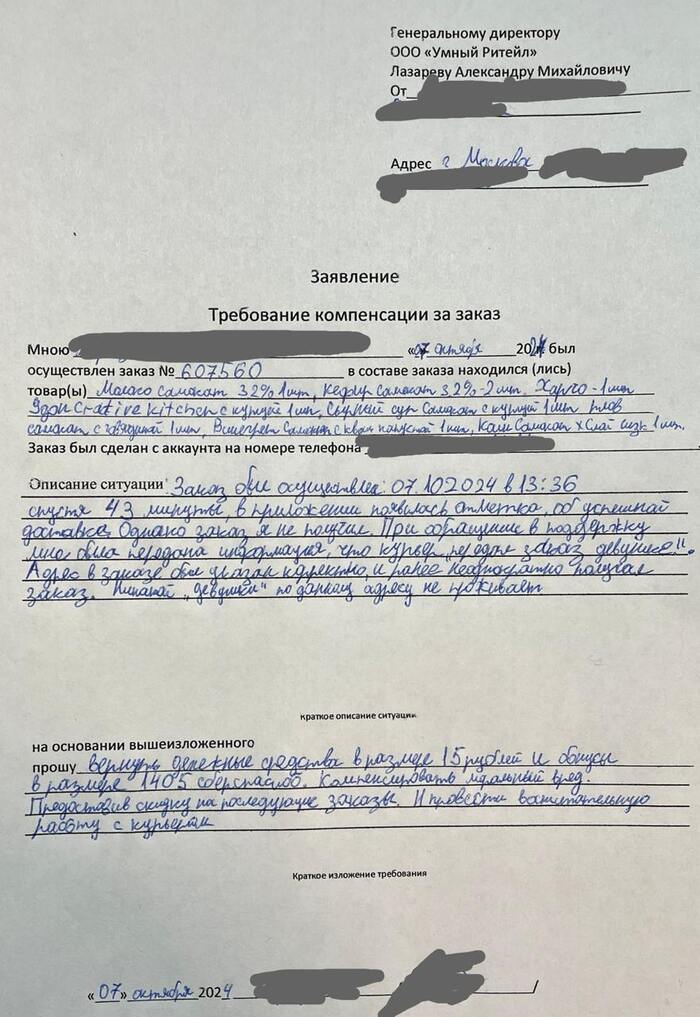 Генеральному директору
ООО «Умный Ритейл»
Лазареву Александру Михайловичу
От
Адрес г Москва
Заявление
Требование компенсации за заказ
Мною «07 октября 2024 был
осуществлен заказ № 607560 в составе заказа находился (лись)
товар(ы) Молоко Самокат 3.2% 1 шт, Кефир Самокат 3,2% - 2 шт. Харчо - 1 шт
Creative Kitchen с курицей 1 шт, Сырный суп Самокат с курицей 1 шт плов
самокат с говядиной 1 шт, Винегрет Самокат с кваш капустой 1 шт, Каша Самокат 1 шт.
Заказ был сделан с аккаунта на номере телефона
Описание ситуации: Заказ был осуществлен: 07.10 2024 в 13:36
спустя 43 минуты, в приложении появилась отметка, об успешной
доставке. Однако заказ я не получил. При обращении в поддержку
мне была передана информация, что курьер передал заказ девушке".
Адрес в заказе был указан корректно, и ранее неоднократно получал
заказ. Никакой „девушки" по данному адресу не проживает
краткое описание ситуации
на основании вышеизложенного
прошу вернуть денежные средства в размере 15 рублей и бонусы
в размере 1405 сберспасиб. Компенсировать моральный вред.
Предоставив скидку на последующие заказы. И провести воспитательную
работу с курьером
Краткое изложение требования
«07» октября 2024 /